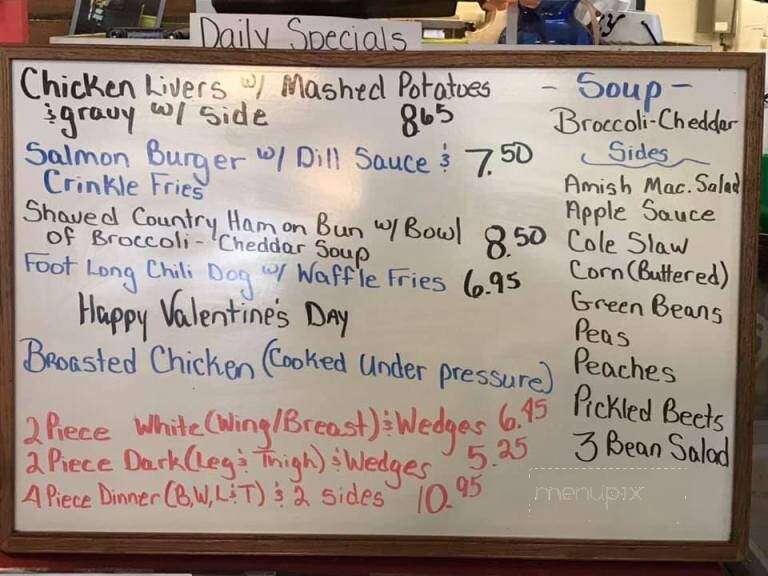 Daily Specials
Chicken Livers w/ Mashed Potatoes
& gravy w/ side 8.65
Salmon Burger w/ Dill Sauce & 7.50
Crinkle Fries
Shaved Country Ham on Bun w/ Bowl
of Broccoli-Cheddar Soup 8.50
Foot Long Chili Dog w/ Waffle Fries 6.95
Happy Valentine's Day
Broasted Chicken (Cooked Under pressure)
2 Piece White (Wing/Breast) & Wedges 6.45
2 Piece Dark (Leg & Thigh) & Wedges 5.25
4 Piece Dinner (B,W,L&T) & 2 sides 10.95
- Soup -
Broccoli-Cheddar
Sides
Amish Mac. Salad
Apple Sauce
Cole Slaw
Corn (Buttered)
Green Beans
Peas
Peaches
Pickled Beets
3 Bean Salad
menupix